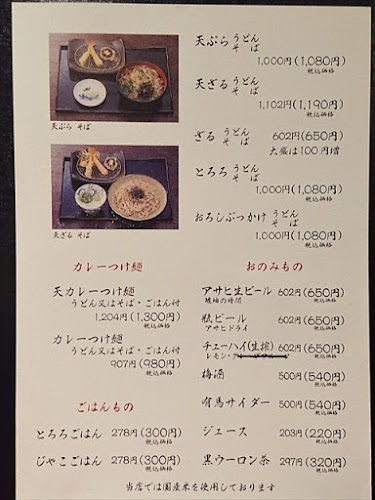 天ぷら うどん
そば
1,000円(1,080円)
税込価格
天ざる うどん
そば
1,102円(1,190円)
税込価格
ざる うどん
そば
602円(650円)
税込価格
大盛は100円増
とろろ うどん
そば
1,000円(1,080円)
税込価格
おろしぶっかけ うどん
そば
1,000円(1,080円)
税込価格
天ぷら そば
天ざる そば
カレーつけ麺
天カレーつけ麺
うどん又はそば・ごはん付
1,204円(1,300円)
税込価格
カレーつけ麺
うどん又はそば・ごはん付
907円(980円)
税込価格
ごはんもの
とろろごはん 278円(300円)
税込価格
じゃこごはん 278円(300円)
税込価格
おのみもの
アサヒ生ビール 602円(650円)
琥珀の時間
税込価格
瓶ビール 602円(650円)
アサヒドライ
税込価格
チューハイ(生搾) 602円(650円)
レモン・
税込価格
梅酒 500円(540円)
税込価格
有馬サイダー 500円(540円)
税込価格
ジュース 203円(220円)
税込価格
黒ウーロン茶 297円(320円)
税込価格
当店では国産米を使用しております